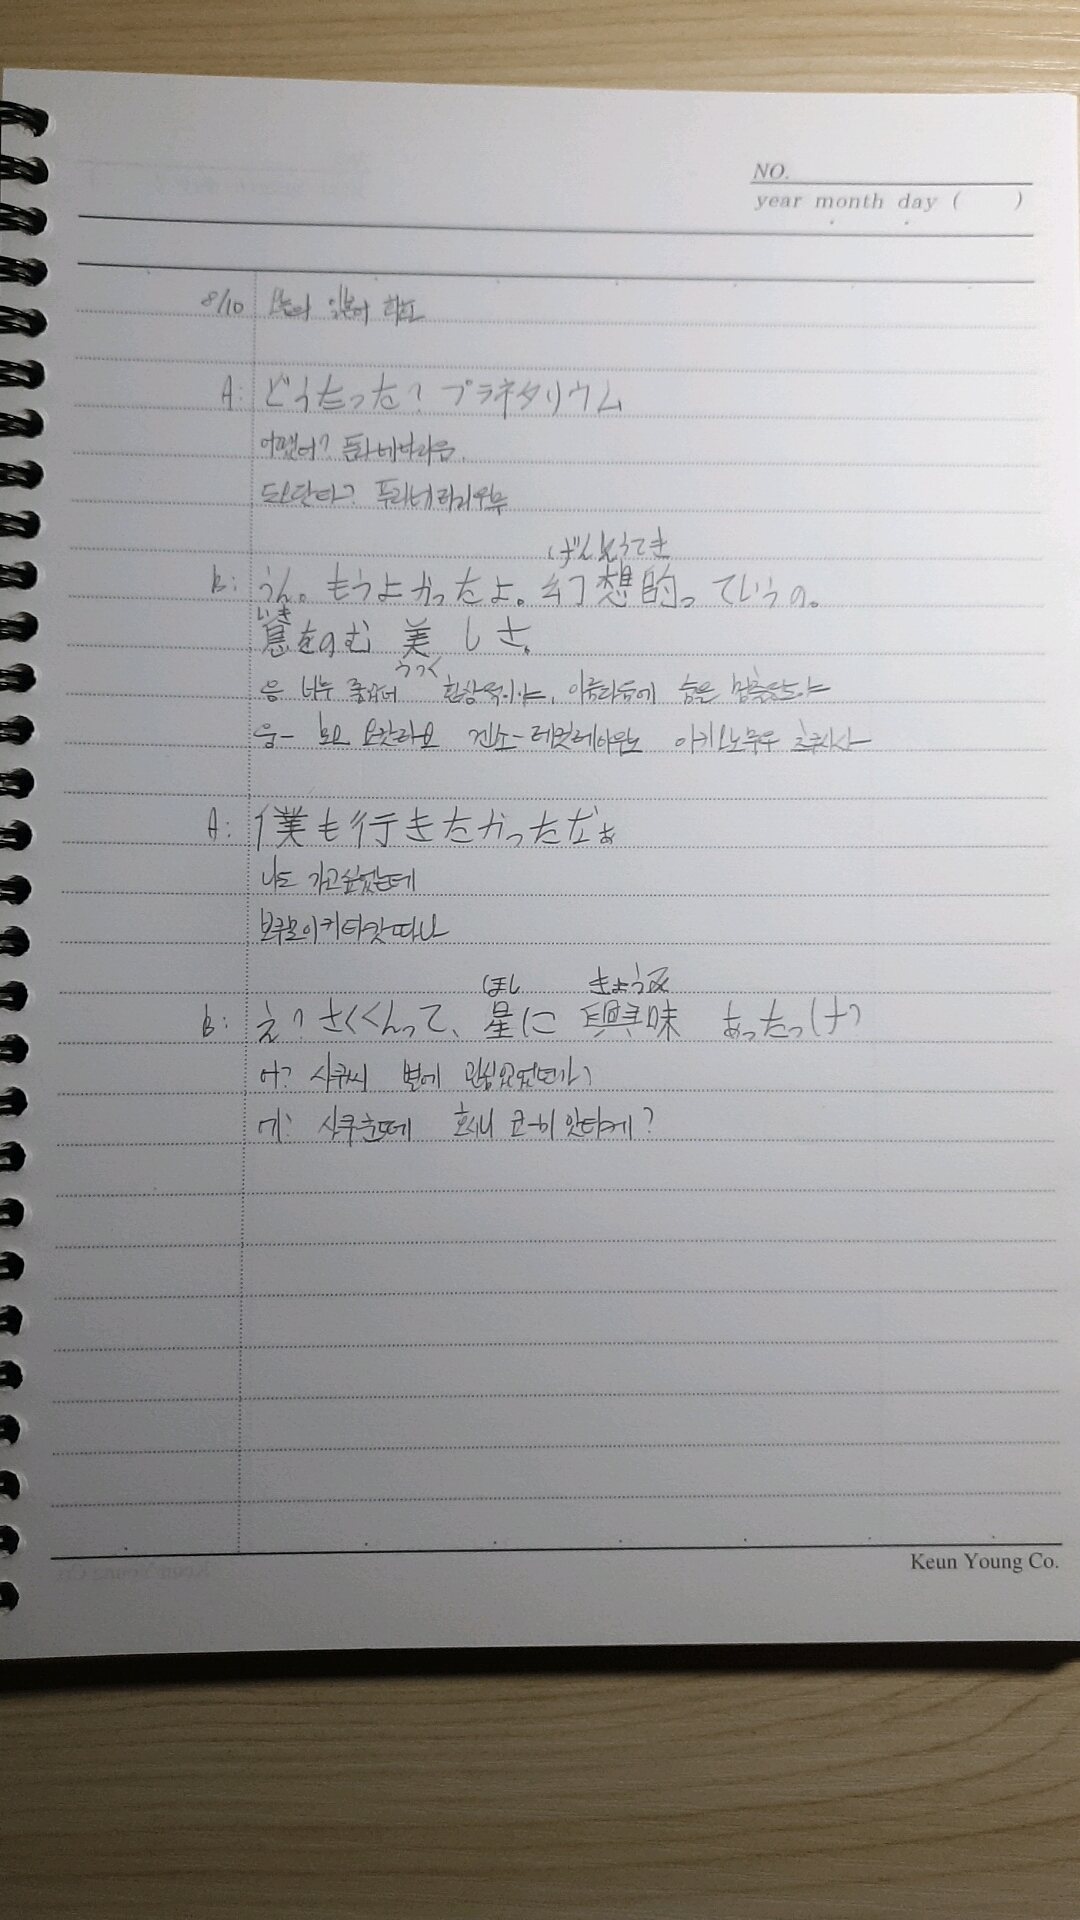 NO.
year month day ( )
8/10 오늘의 일본어 회화
A: どうたった? プラネタリウム
어땠어? 플라네타리움.
도오닷타? 푸라네타리우무
げんそうてき
B: うん。もうよかったよ。幻想的っていうの。
いき
息をのむ 美しさ。
うつく
응 너무 좋았어 환상적이야, 아름다움에 숨은 멈출정도야
웅- 모오 요캇타요 겐소-테킷테이우노 이키오노무우
A: 僕も行きたかったなぁ
나도 가고싶었는데
보쿠모이키타캇따나
ほし きょうみ
B: え? さくくんって、星に 興味 あったっけ?
어? 사쿠씨 별에 관심있었던가?
에? 사쿠쿤떼 호시니 쿄-미 앗타케?
Keun Young Co.